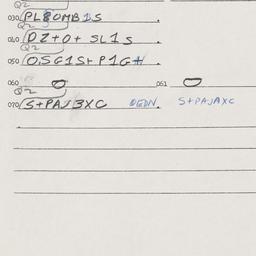 Q2
030 PL8OMB1S .
Q2
040 D2+O+ SL1S .
Q2
050 O.SG1S+ P1G+ .
060 O 061 O
Q2
070 S+PAJ3XC DEDN. S+PAJAXC